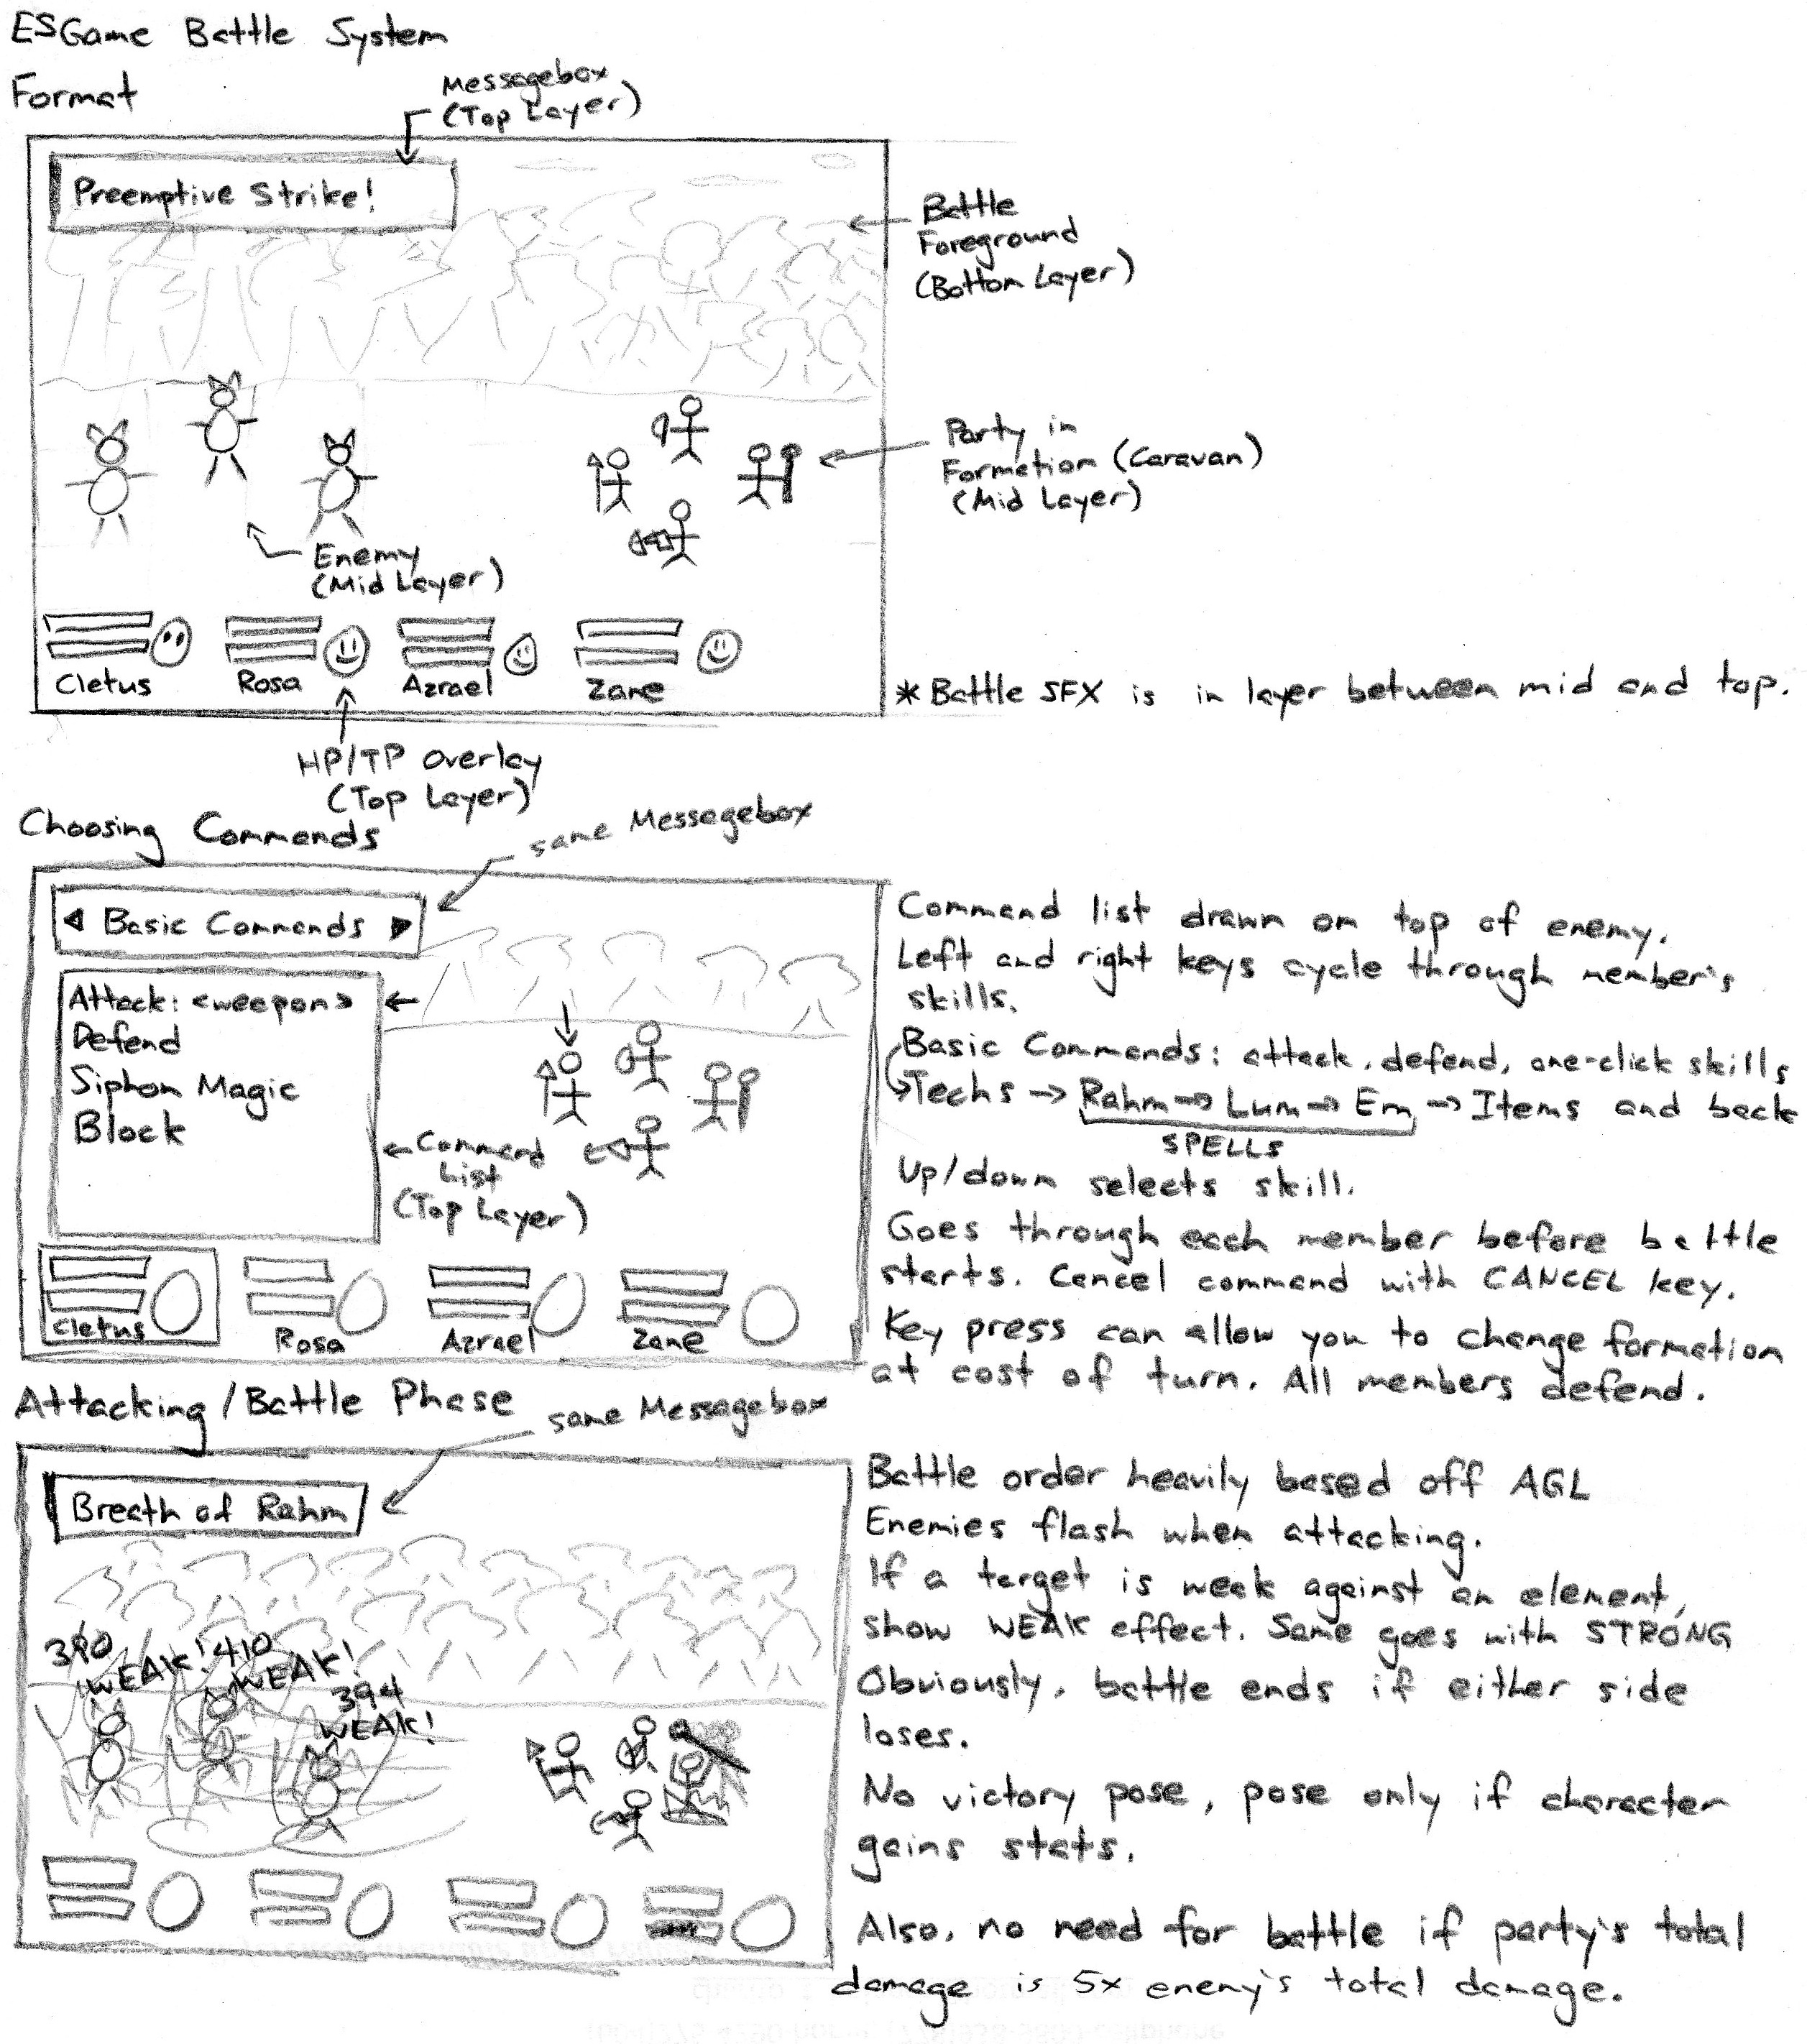 ESGame Battle System
Format
Messagebox
(Top Layer)
Preemptive Strike!
Battle
Foreground
(Bottom Layer)
Party in
Formation (Caravan)
(Mid Layer)
Enemy
(Mid Layer)
Cletus Rosa Azrael Zane
*Battle SFX is in layer between mid and top.
HP/TP Overlay
(Top Layer)
Choosing Commands
same Messagebox
◀ Basic Commands ▶
Attack: <weapon>
Defend
Siphon Magic
Block
Command
List
(Top Layer)
Cletus Rosa Azrael Zane
Command list drawn on top of enemy.
Left and right keys cycle through member's
skills.
Basic Commands: attack, defend, one-click skills
Techs → Rahm → Lum → Em → Items and back
SPELLS
Up/down selects skill.
Goes through each member before battle
starts. Cancel command with CANCEL key.
Key press can allow you to change formation
at cost of turn. All members defend.
Attacking/Battle Phase
same Messagebox
Breath of Rahm
390
WEAK!
410
WEAK!
394
WEAK!
Battle order heavily based off AGL
Enemies flash when attacking.
If a target is weak against an element,
show WEAK effect. Same goes with STRONG
Obviously, battle ends if either side
loses.
No victory pose, pose only if character
gains stats.
Also, no need for battle if party's total
damage is 5x enemy's total damage.